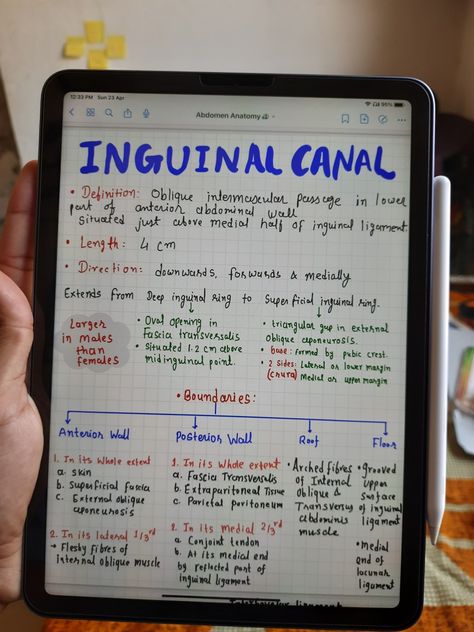 12:33 PM Sun 23 Apr
95%
Abdomen Anatomy
INGUINAL CANAL
• Definition: Oblique intermuscular passage in lower
part of anterior abdominal wall
Situated just above medial half of inguinal ligament.
• Length: 4 cm
• Direction: downwards, forwards & medially
Extends from Deep inguinal ring to Superficial inguinal ring.
Larger
in males
than
females
• Oval opening in
Fascia transversalis
• Situated 1.2 cm above
midinguinal point.
• triangular gap in external
oblique aponeurosis.
• base: formed by pubic crest.
• 2 sides: Lateral or lower margin
(crura) Medial or upper margin
• Boundaries:
Anterior Wall
1. In its whole extent
a. Skin
b. Superficial fascia
c. External oblique
aponeurosis
2. In its lateral 1/3rd
→ Fleshy fibres of
internal oblique muscle
Posterior Wall
1. In its whole extent
a. Fascia Transversalis
b. Extraperitoneal Tissue
c. Parietal peritoneum
2. In its Medial 2/3rd
a. Conjoint tendon
b. At its medial end
by reflected part of
inguinal ligament
Roof
• Arched fibres
of Internal
oblique &
Transversus
abdominis
muscle
Floor
• grooved
upper
surface
of inguinal
ligament
• Medial
end of
lacunar
ligament